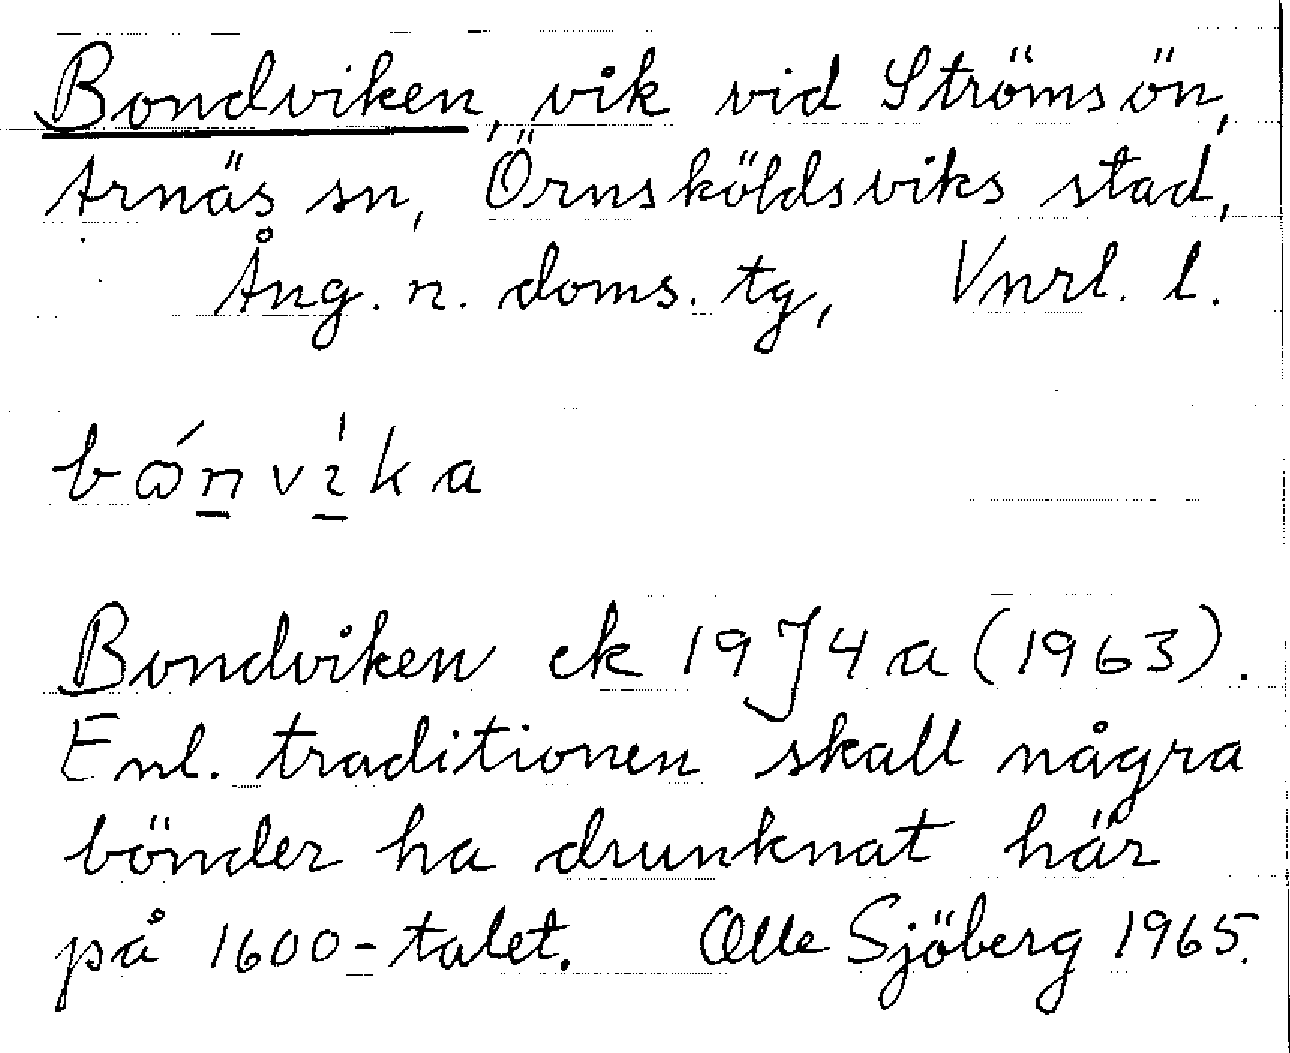 Bondviken, vik vid Strömsön,
Arnäs sn, Örnsköldsviks stad,
Ång. n. doms. tg, Vnrl. l.
Bondviken ek 19J4a (1963).
Enl. traditionen skall några
bönder ha drunknat här
på 1600-talet. Olle Sjöberg 1965.